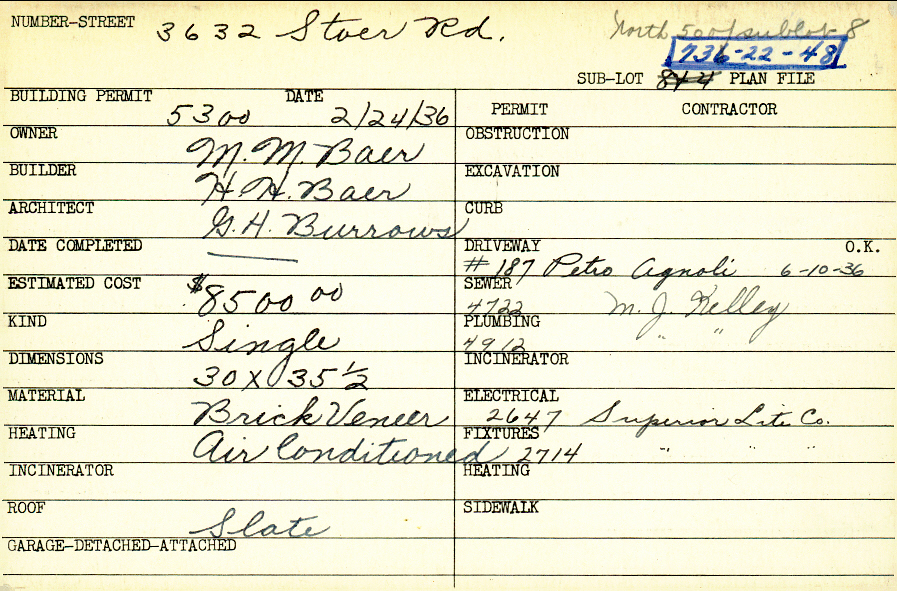 NUMBER-STREET 3632 Stoer Rd.
North 50 of sublot 8
736-22-48
SUB-LOT 844 PLAN FILE
BUILDING PERMIT 5300 DATE 2/24/36
OWNER M. M. Baer
BUILDER H. H. Baer
ARCHITECT G. H. Burrows
DATE COMPLETED —
ESTIMATED COST $8500 00
KIND Single
DIMENSIONS 30 x 35 1/2
MATERIAL Brick Veneer
HEATING Air Conditioned
INCINERATOR
ROOF Slate
GARAGE-DETACHED-ATTACHED
PERMIT CONTRACTOR
OBSTRUCTION
EXCAVATION
CURB
DRIVEWAY O.K.
# 187 Petro Agnoli 6-10-36
SEWER
4722 M. J. Kelley
PLUMBING
4912 " "
INCINERATOR
ELECTRICAL
2647 Superior Lite Co.
FIXTURES
2714 " " "
HEATING
SIDEWALK